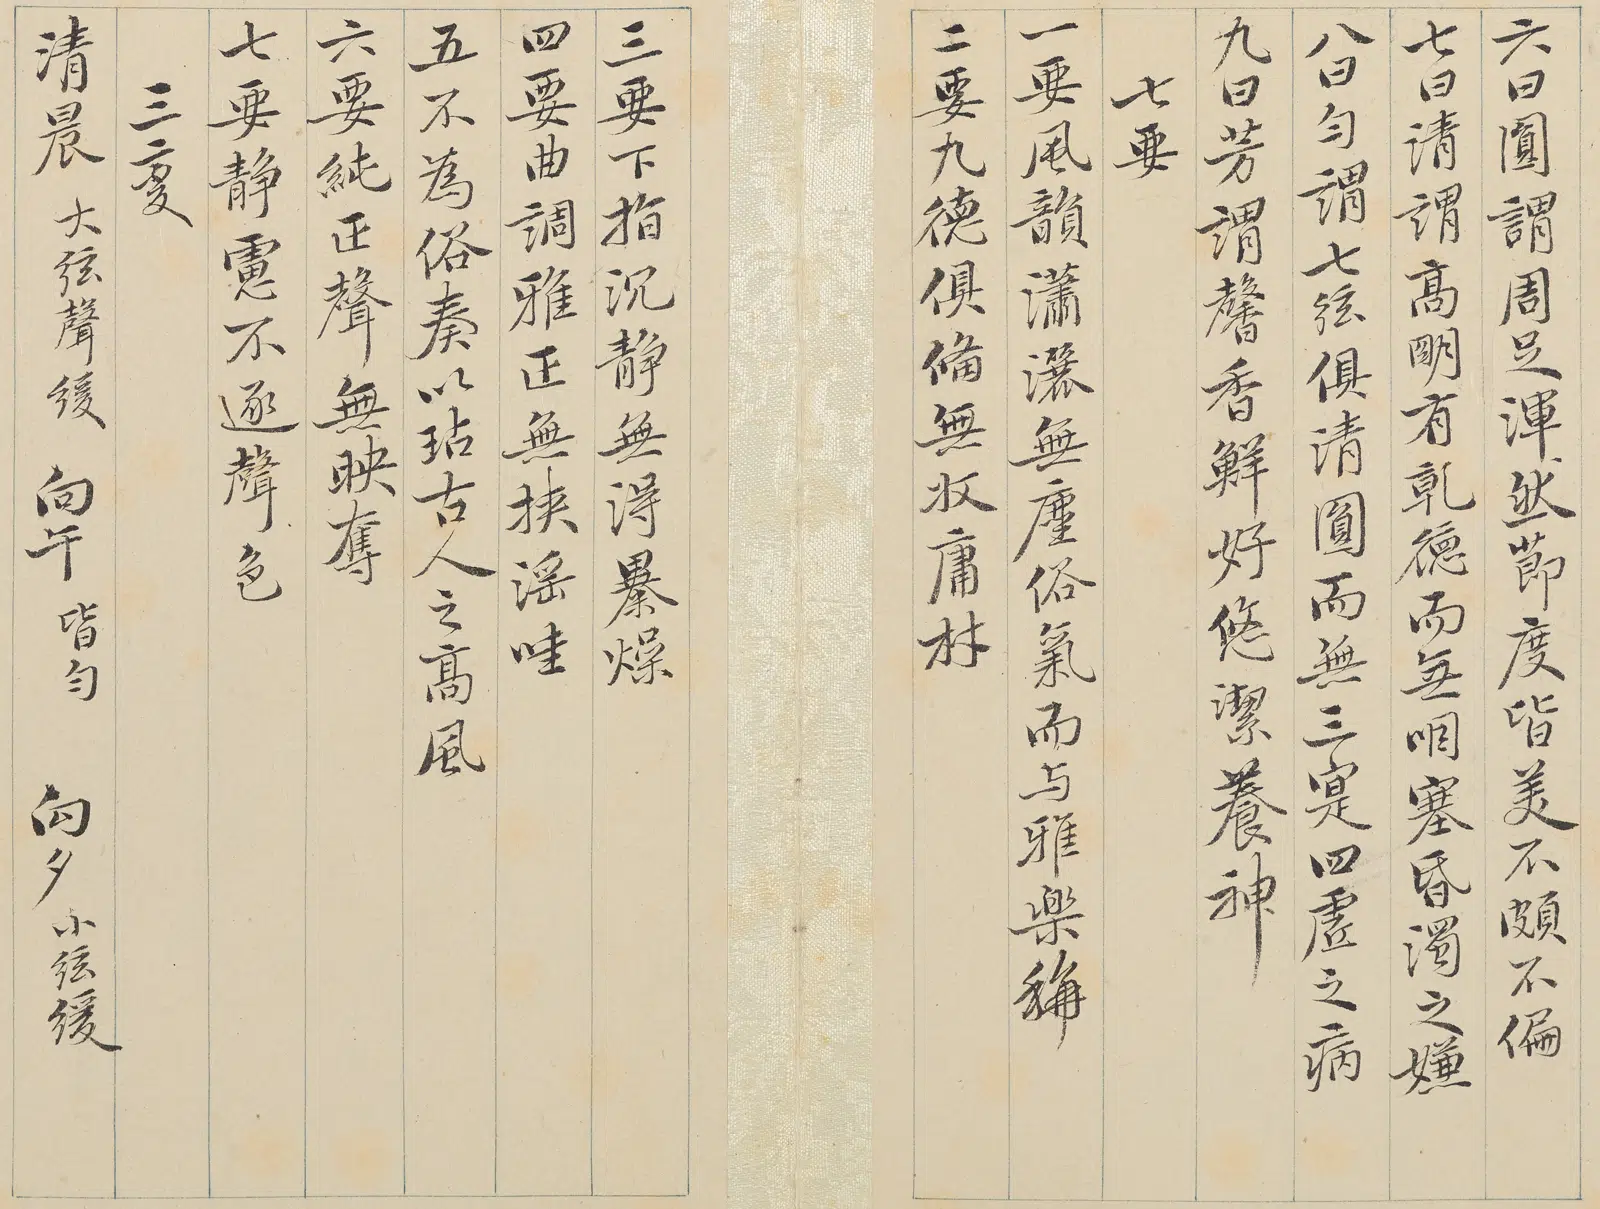 六曰圓謂周足渾然節度皆美不頗不偏
七曰清謂高明有乹德而無咽塞昏濁之嫌
八曰勻謂七弦俱清圓而無三寔四虛之病
九曰芳謂馨香鮮好悠潔養神
七要
一要風韻瀟灑無塵俗氣而与雅樂稱
二要九德俱俻無收庸材
三要下指沉静無得暴燥
四要曲調雅正無挾淫哇
五不為俗奏以玷古人之高風
六要純正聲無映奪
七要静慮不逐聲色
三变
清晨 大弦聲缓 向午 皆勻 向夕 小弦缓